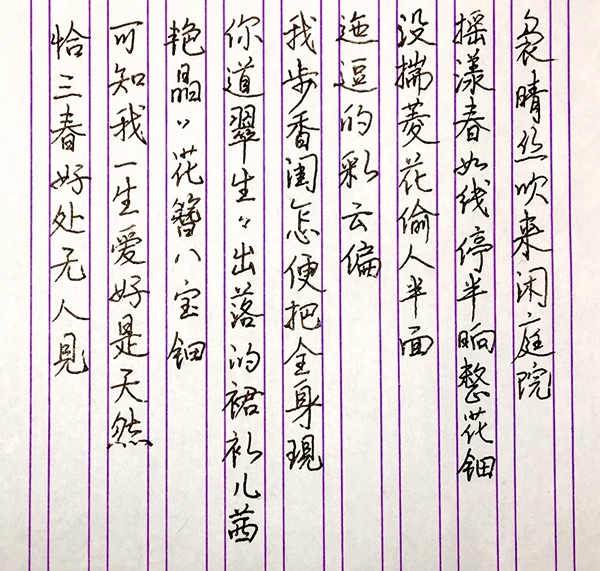 袅晴丝吹来闲庭院
摇漾春如线停半晌整花钿
没揣菱花偷人半面
迤逗的彩云偏
我步香闺怎便把全身现
你道翠生々出落的裙衫儿茜
艳晶々花簪八宝钿
可知我一生爱好是天然
恰三春好处无人见